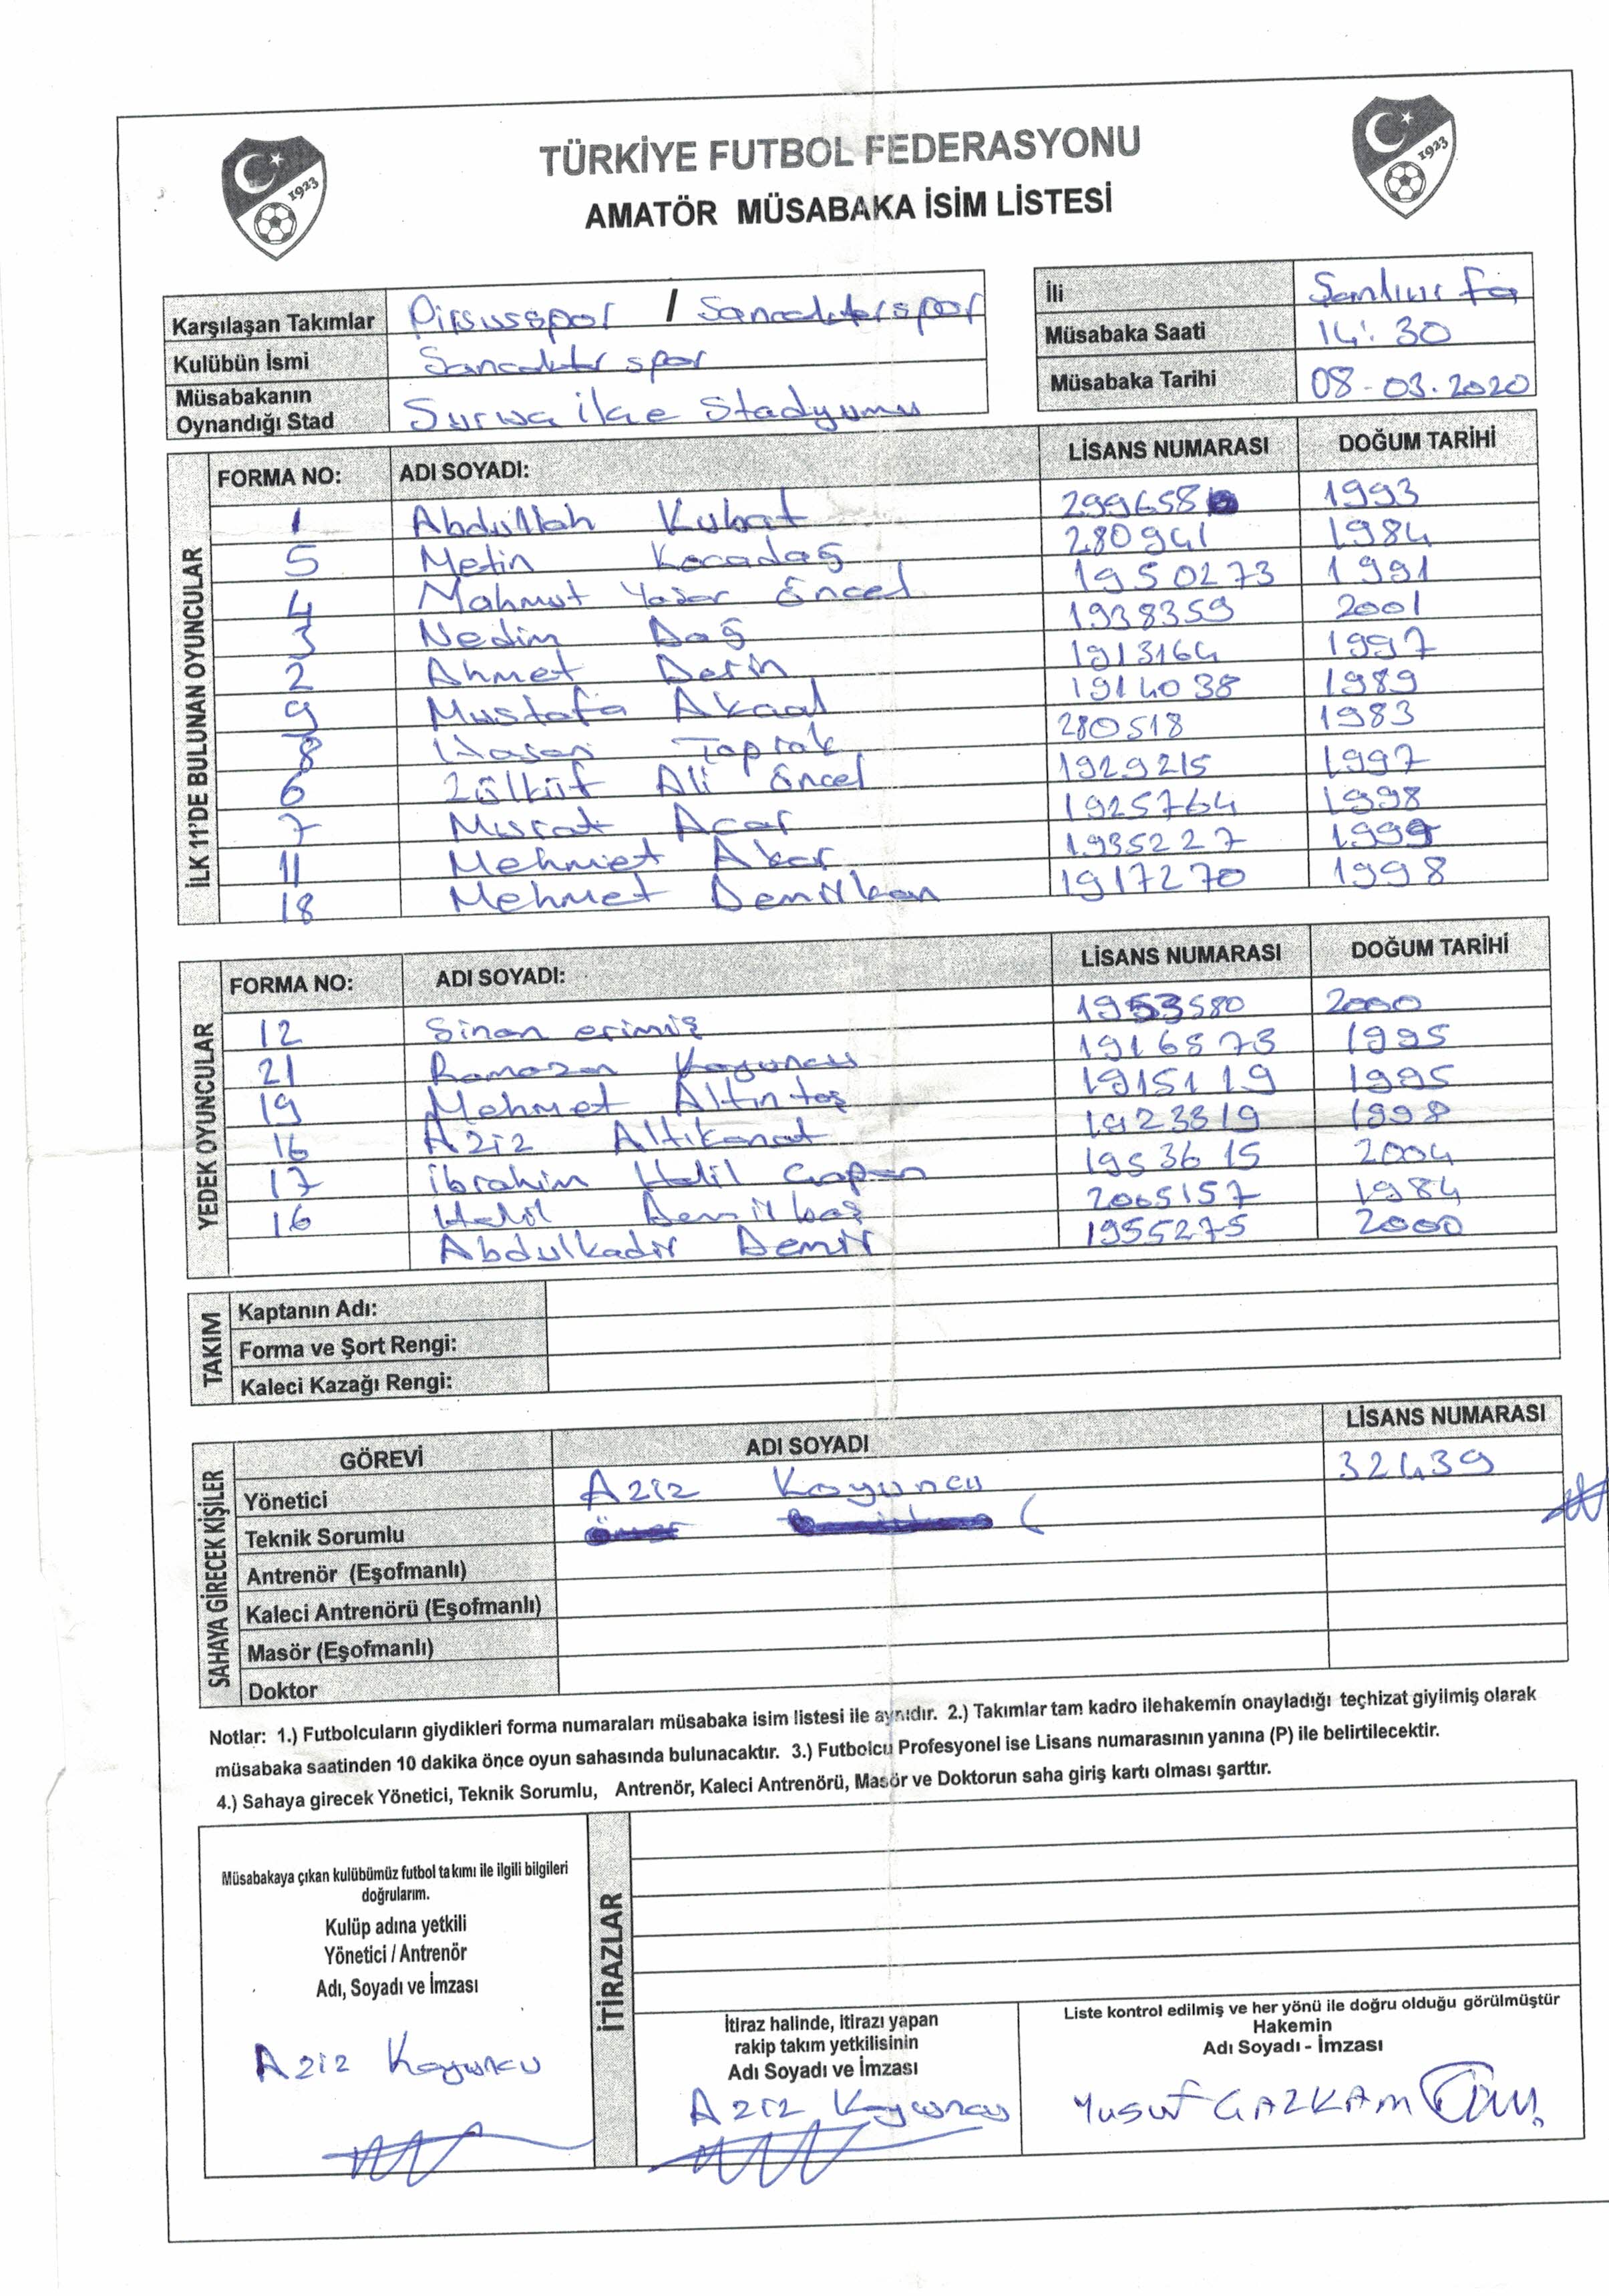 TÜRKİYE FUTBOL FEDERASYONU
AMATÖR MÜSABAKA İSİM LİSTESİ
1923
1923
Karşılaşan Takımlar Pirsusspor / Sancaktarspor
Kulübün İsmi Sancaktar spor
Müsabakanın Oynandığı Stad Suruç ilçe Stadyumu
İli Şanlıurfa
Müsabaka Saati 14:30
Müsabaka Tarihi 08-03.2020
İLK 11'DE BULUNAN OYUNCULAR
FORMA NO: ADI SOYADI: LİSANS NUMARASI DOĞUM TARİHİ
1 Abdullah Kubat 299658 1993
5 Metin Kocadağ 280941 1984
4 Mahmut Yaşar Öncel 1950273 1991
3 Nedim Dağ 1938359 2001
2 Ahmet Derin 1913164 1997
9 Mustafa Akaal 1914038 1989
8 Hasan Toprak 280518 1983
6 Zülküf Ali Öncel 1929215 1997
7 Murat Acar 1925764 1998
11 Mehmet Akar 1935227 1999
18 Mehmet Demirkan 1917270 1998
YEDEK OYUNCULAR
FORMA NO: ADI SOYADI: LİSANS NUMARASI DOĞUM TARİHİ
12 Sinan erimiş 1953580 2000
21 Ramazan Koyuncu 1916573 1995
19 Mehmet Altıntaş 1915119 1995
16 Aziz Altıkanat 1923319 1998
17 İbrahim Halil Çapan 1953615 2004
16 Halil Demirbaş 2005157 1984
Abdulkadir Demir 1955275 2000
TAKIM
Kaptanın Adı:
Forma ve Şort Rengi:
Kaleci Kazağı Rengi:
SAHAYA GİRECEK KİŞİLER
GÖREVİ ADI SOYADI LİSANS NUMARASI
Yönetici Aziz Koyuncu 32439
Teknik Sorumlu
Antrenör (Eşofmanlı)
Kaleci Antrenörü (Eşofmanlı)
Masör (Eşofmanlı)
Doktor
Notlar: 1.) Futbolcuların giydikleri forma numaraları müsabaka isim listesi ile aynıdır. 2.) Takımlar tam kadro ilehakemin onayladığı teçhizat giyilmiş olarak
müsabaka saatinden 10 dakika önce oyun sahasında bulunacaktır. 3.) Futbolcu Profesyonel ise Lisans numarasının yanına (P) ile belirtilecektir.
4.) Sahaya girecek Yönetici, Teknik Sorumlu, Antrenör, Kaleci Antrenörü, Masör ve Doktorun saha giriş kartı olması şarttır.
Müsabakaya çıkan kulübümüz futbol takımı ile ilgili bilgileri
doğrularım.
Kulüp adına yetkili
Yönetici / Antrenör
Adı, Soyadı ve İmzası
Aziz Koyuncu
İTİRAZLAR
İtiraz halinde, itirazı yapan
rakip takım yetkilisinin
Adı Soyadı ve İmzası
Aziz Koyuncu
Liste kontrol edilmiş ve her yönü ile doğru olduğu görülmüştür
Hakemin
Adı Soyadı - İmzası
Yusuf GAZKAM